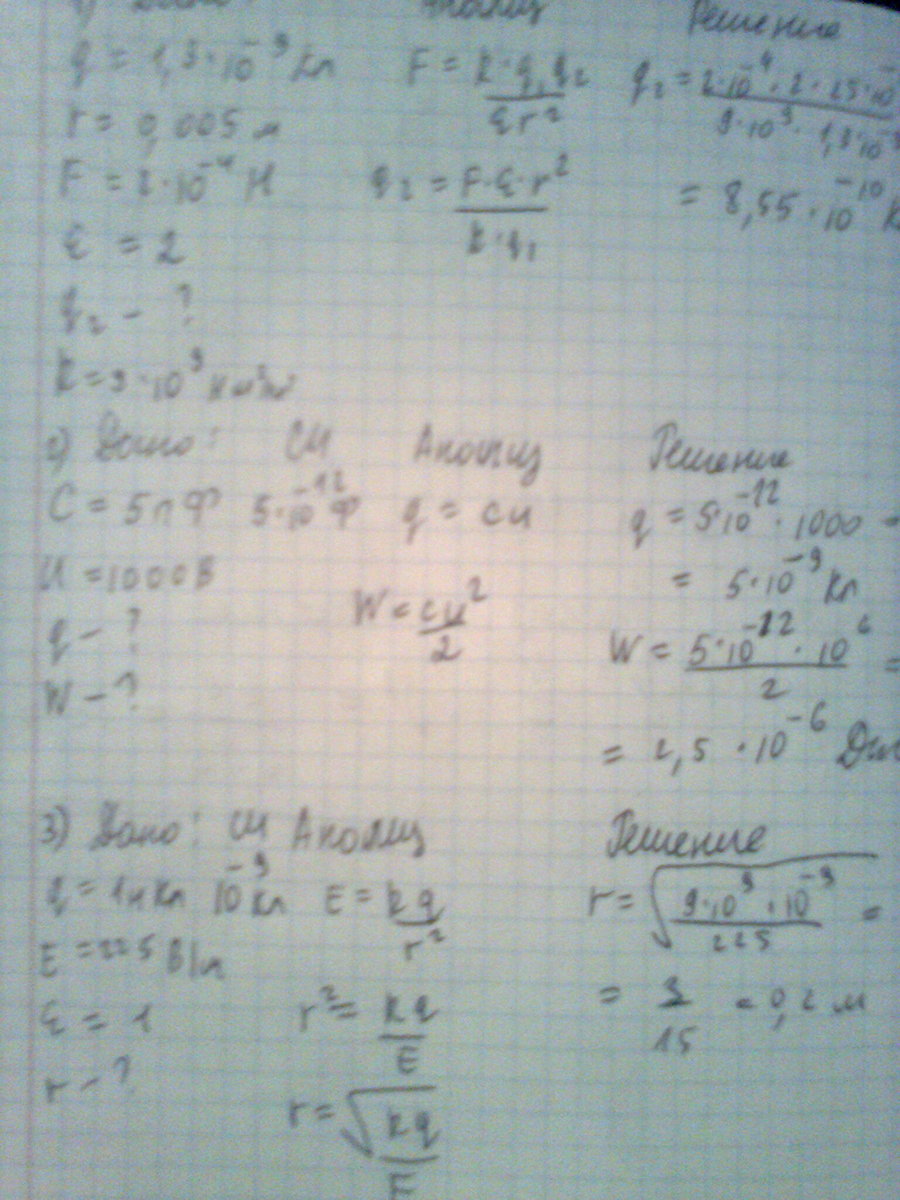 1) Дано: Анализ Решение
q = 1,3·10⁻⁹ Кл F = k·q₁q₂/εr² q₂ = 2·10⁻⁴·2·25·10⁻/9·10⁹·1,3·10⁻⁹
r = 0,005 м
F = 2·10⁻⁴ Н q₂ = F·ε·r²/k·q₁ = 8,55·10⁻¹⁰ К
ε = 2
q₂ - ?
k = 9·10⁹
2) Дано: СИ Анализ Решение
C = 5пФ 5·10⁻¹² Ф q = cu q = 5·10⁻¹²·1000 =
U = 1000В = 5·10⁻⁹ Кл
q - ? W = cu²/2 W = 5·10⁻¹²·10⁶/2 =
W - ?
= 2,5·10⁻⁶ Дж
3) Дано: СИ Анализ Решение
q = 1нКл 10⁻⁹Кл E = kq/r² r = √9·10⁹·10⁻⁹/225 =
E = 225 В/м
ε = 1 r² = kq/E = 3/15 = 0,2 м
r - ?
r = √kq/E